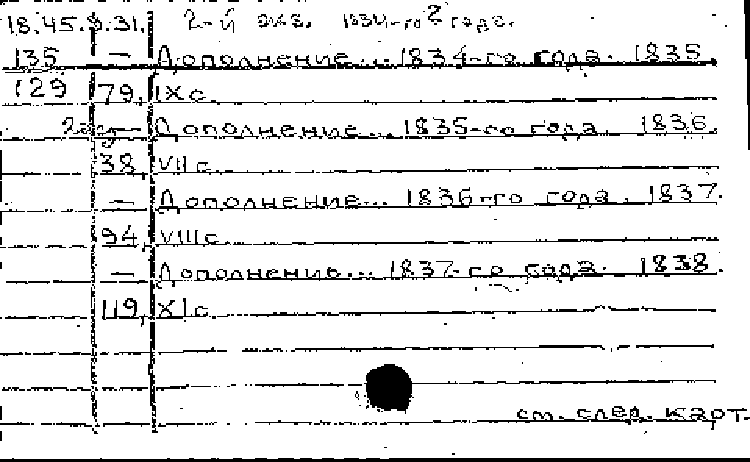 18.45.8.31. 2-й экз. 1834-го года.
135 — Дополнение... 1834-го года. 1835.
129 79, IX с.
— Дополнение... 1835-го года. 1836.
38, VII с.
— Дополнение... 1836-го года. 1837.
94, VIII с.
— Дополнение... 1837-го года. 1838.
119, XI с.
см. след. карт.